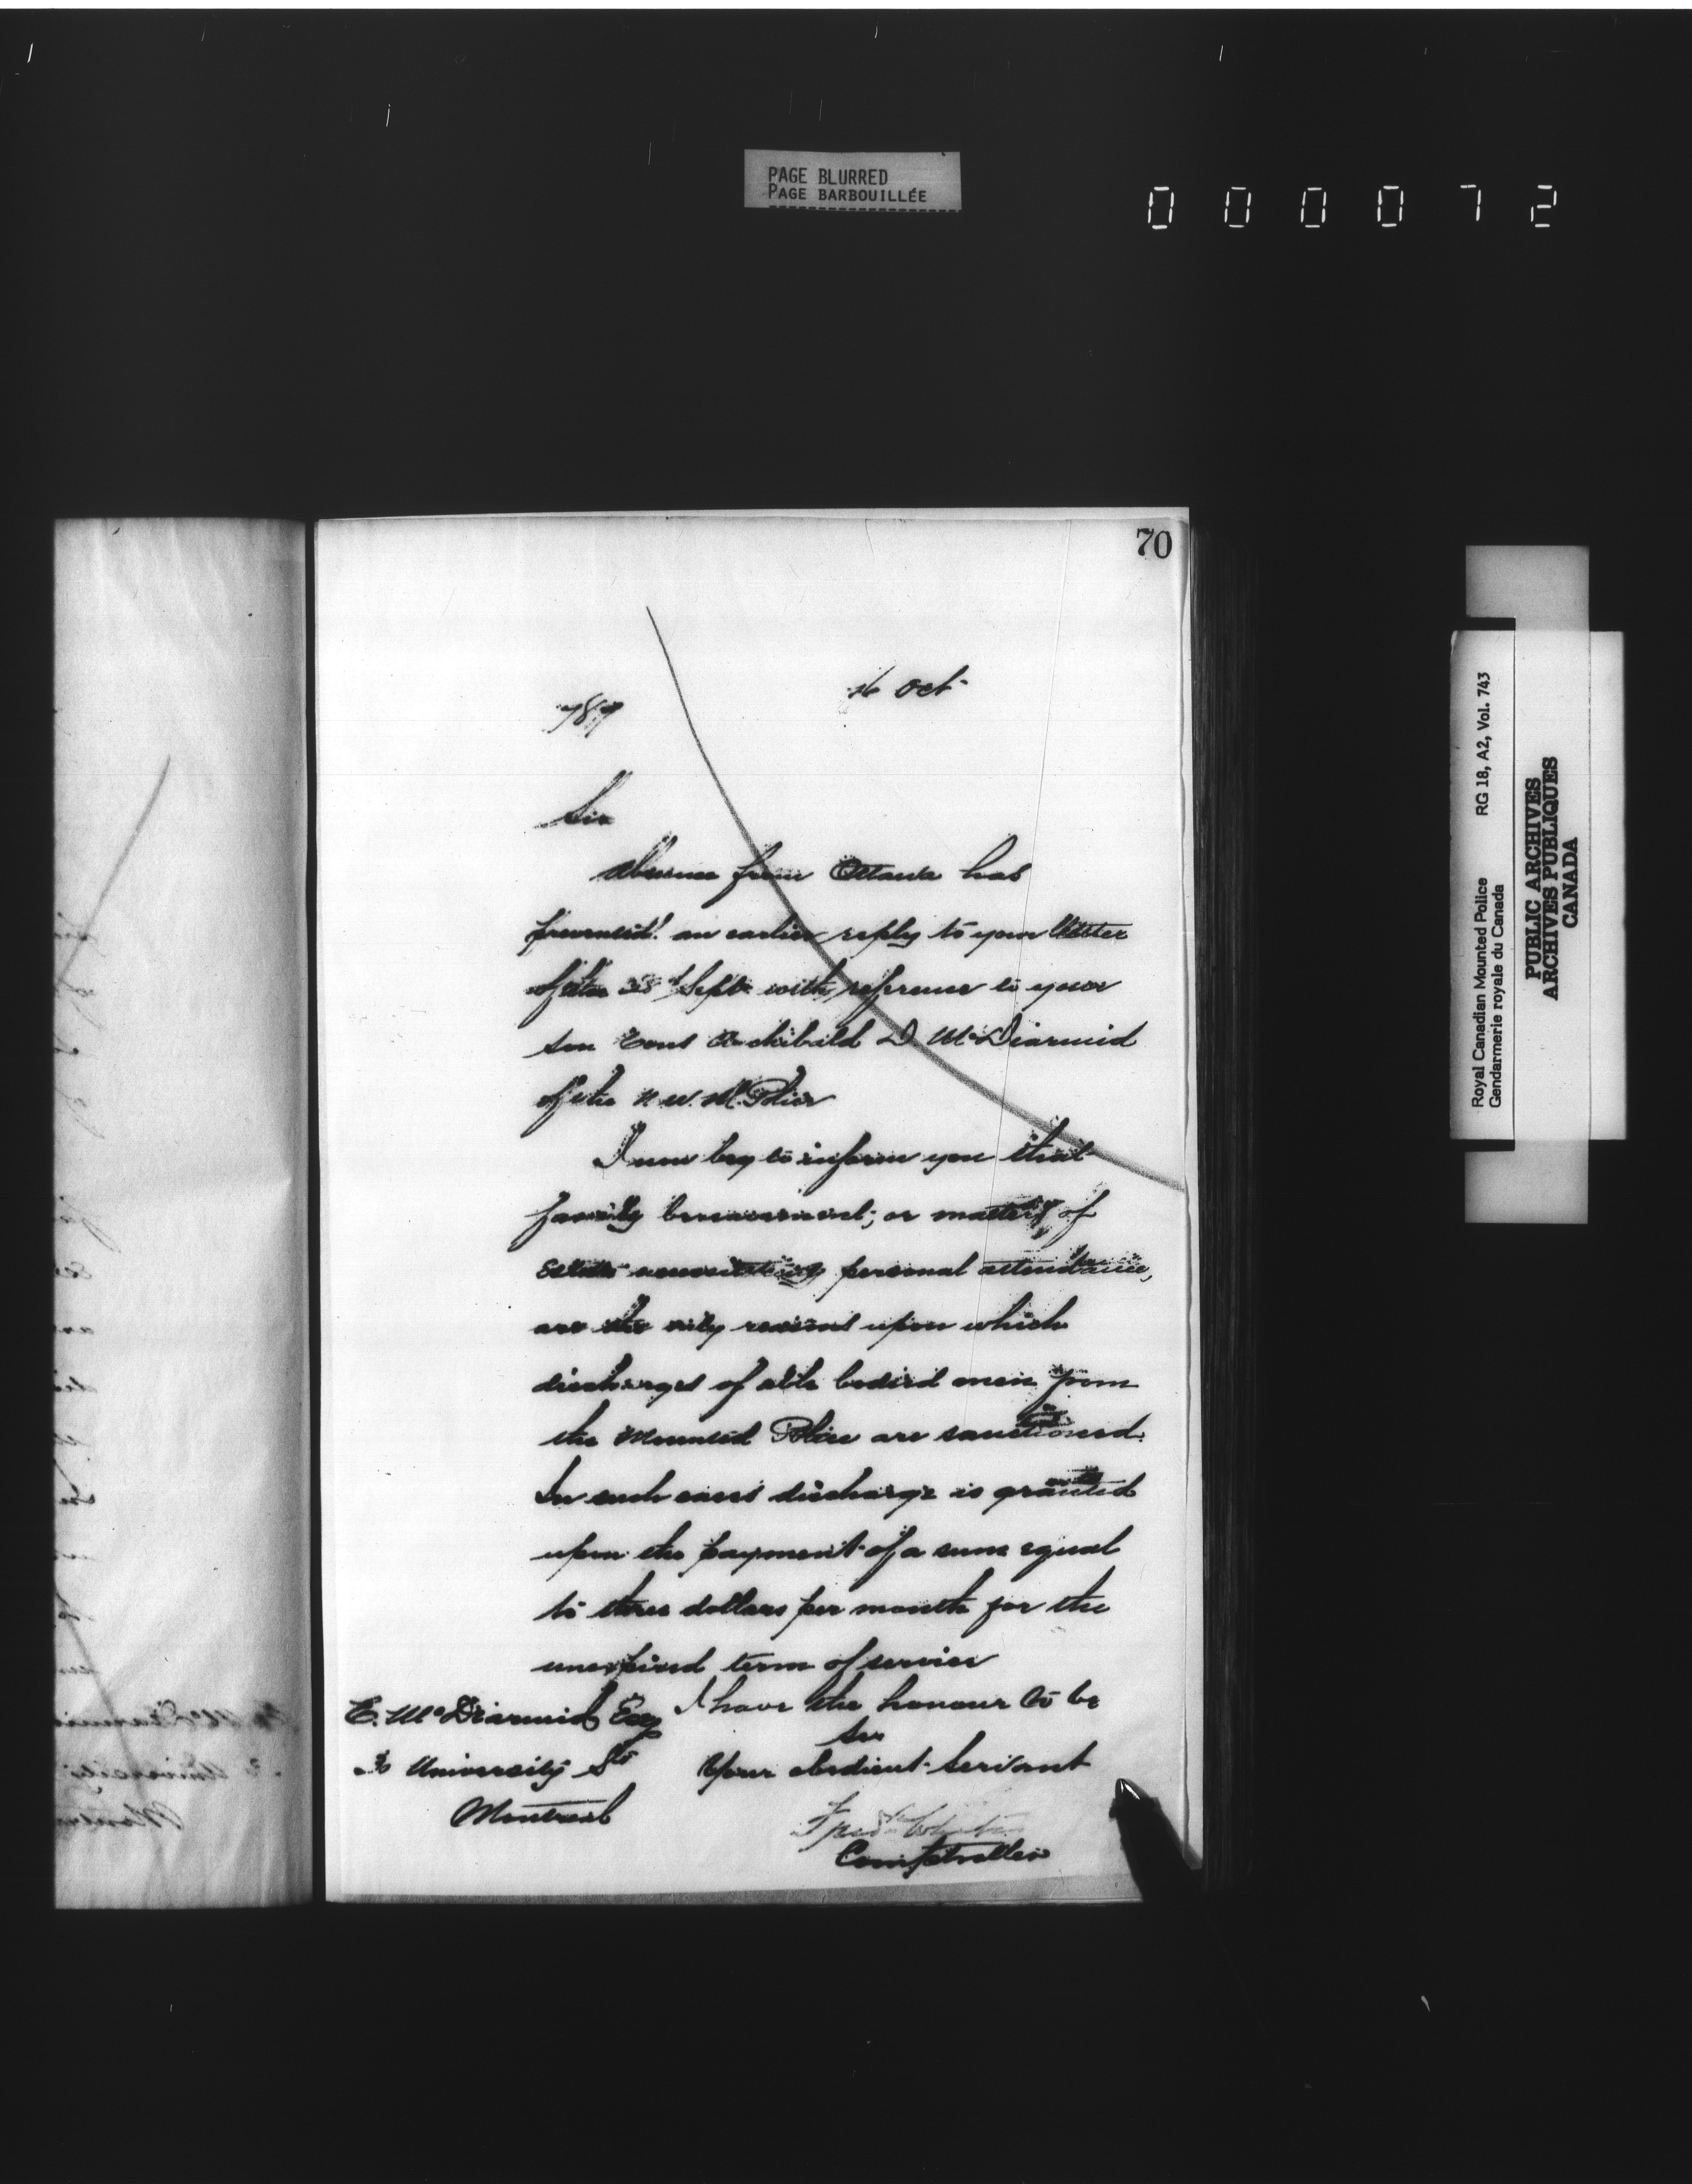 PAGE BLURRED
PAGE BARBOUILLÉE
000072
70
16 Oct
789
Sir
Absence from Ottawa has
prevented an earlier reply to your letter
of the Sept. with reference to your
son Const Archibald D McDiarmid
of the N. W. M. Police
I now beg to inform you that
family bereavement, or matters of
Estate necessitating personal attendance,
are the only reasons upon which
discharges of able bodied men from
the Mounted Police are sanctioned.
In such cases discharge is granted
upon the payment of a sum equal
to three dollars per month for the
unexpired term of service
I have the honour to be
Sir
Your obedient servant
Fred White
Comptroller
E. McDiarmid Esq
University St
Montreal
Royal Canadian Mounted Police RG 18, A2, Vol. 743
Gendarmerie royale du Canada
PUBLIC ARCHIVES
ARCHIVES PUBLIQUES
CANADA